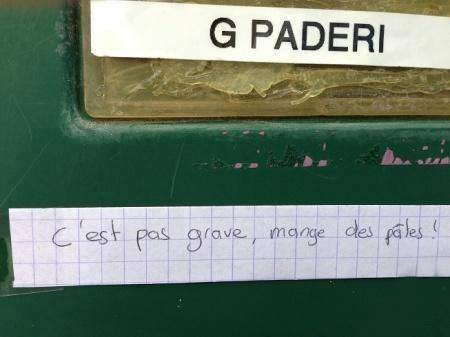 G PADERI
C'est pas grave, mange des pâtes !